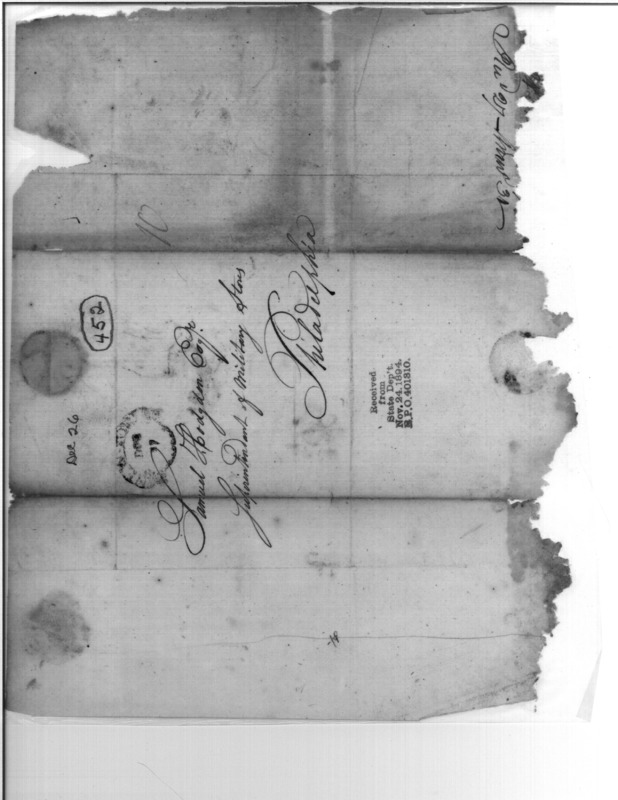 10
452
Dec 26
DEC
27
Samuel Hodgdon Esqr.
Superintendant of Military Stores
Philadelphia
Received
from
State Dep't.
Nov. 24. 1894.
R.P.O. 401810.